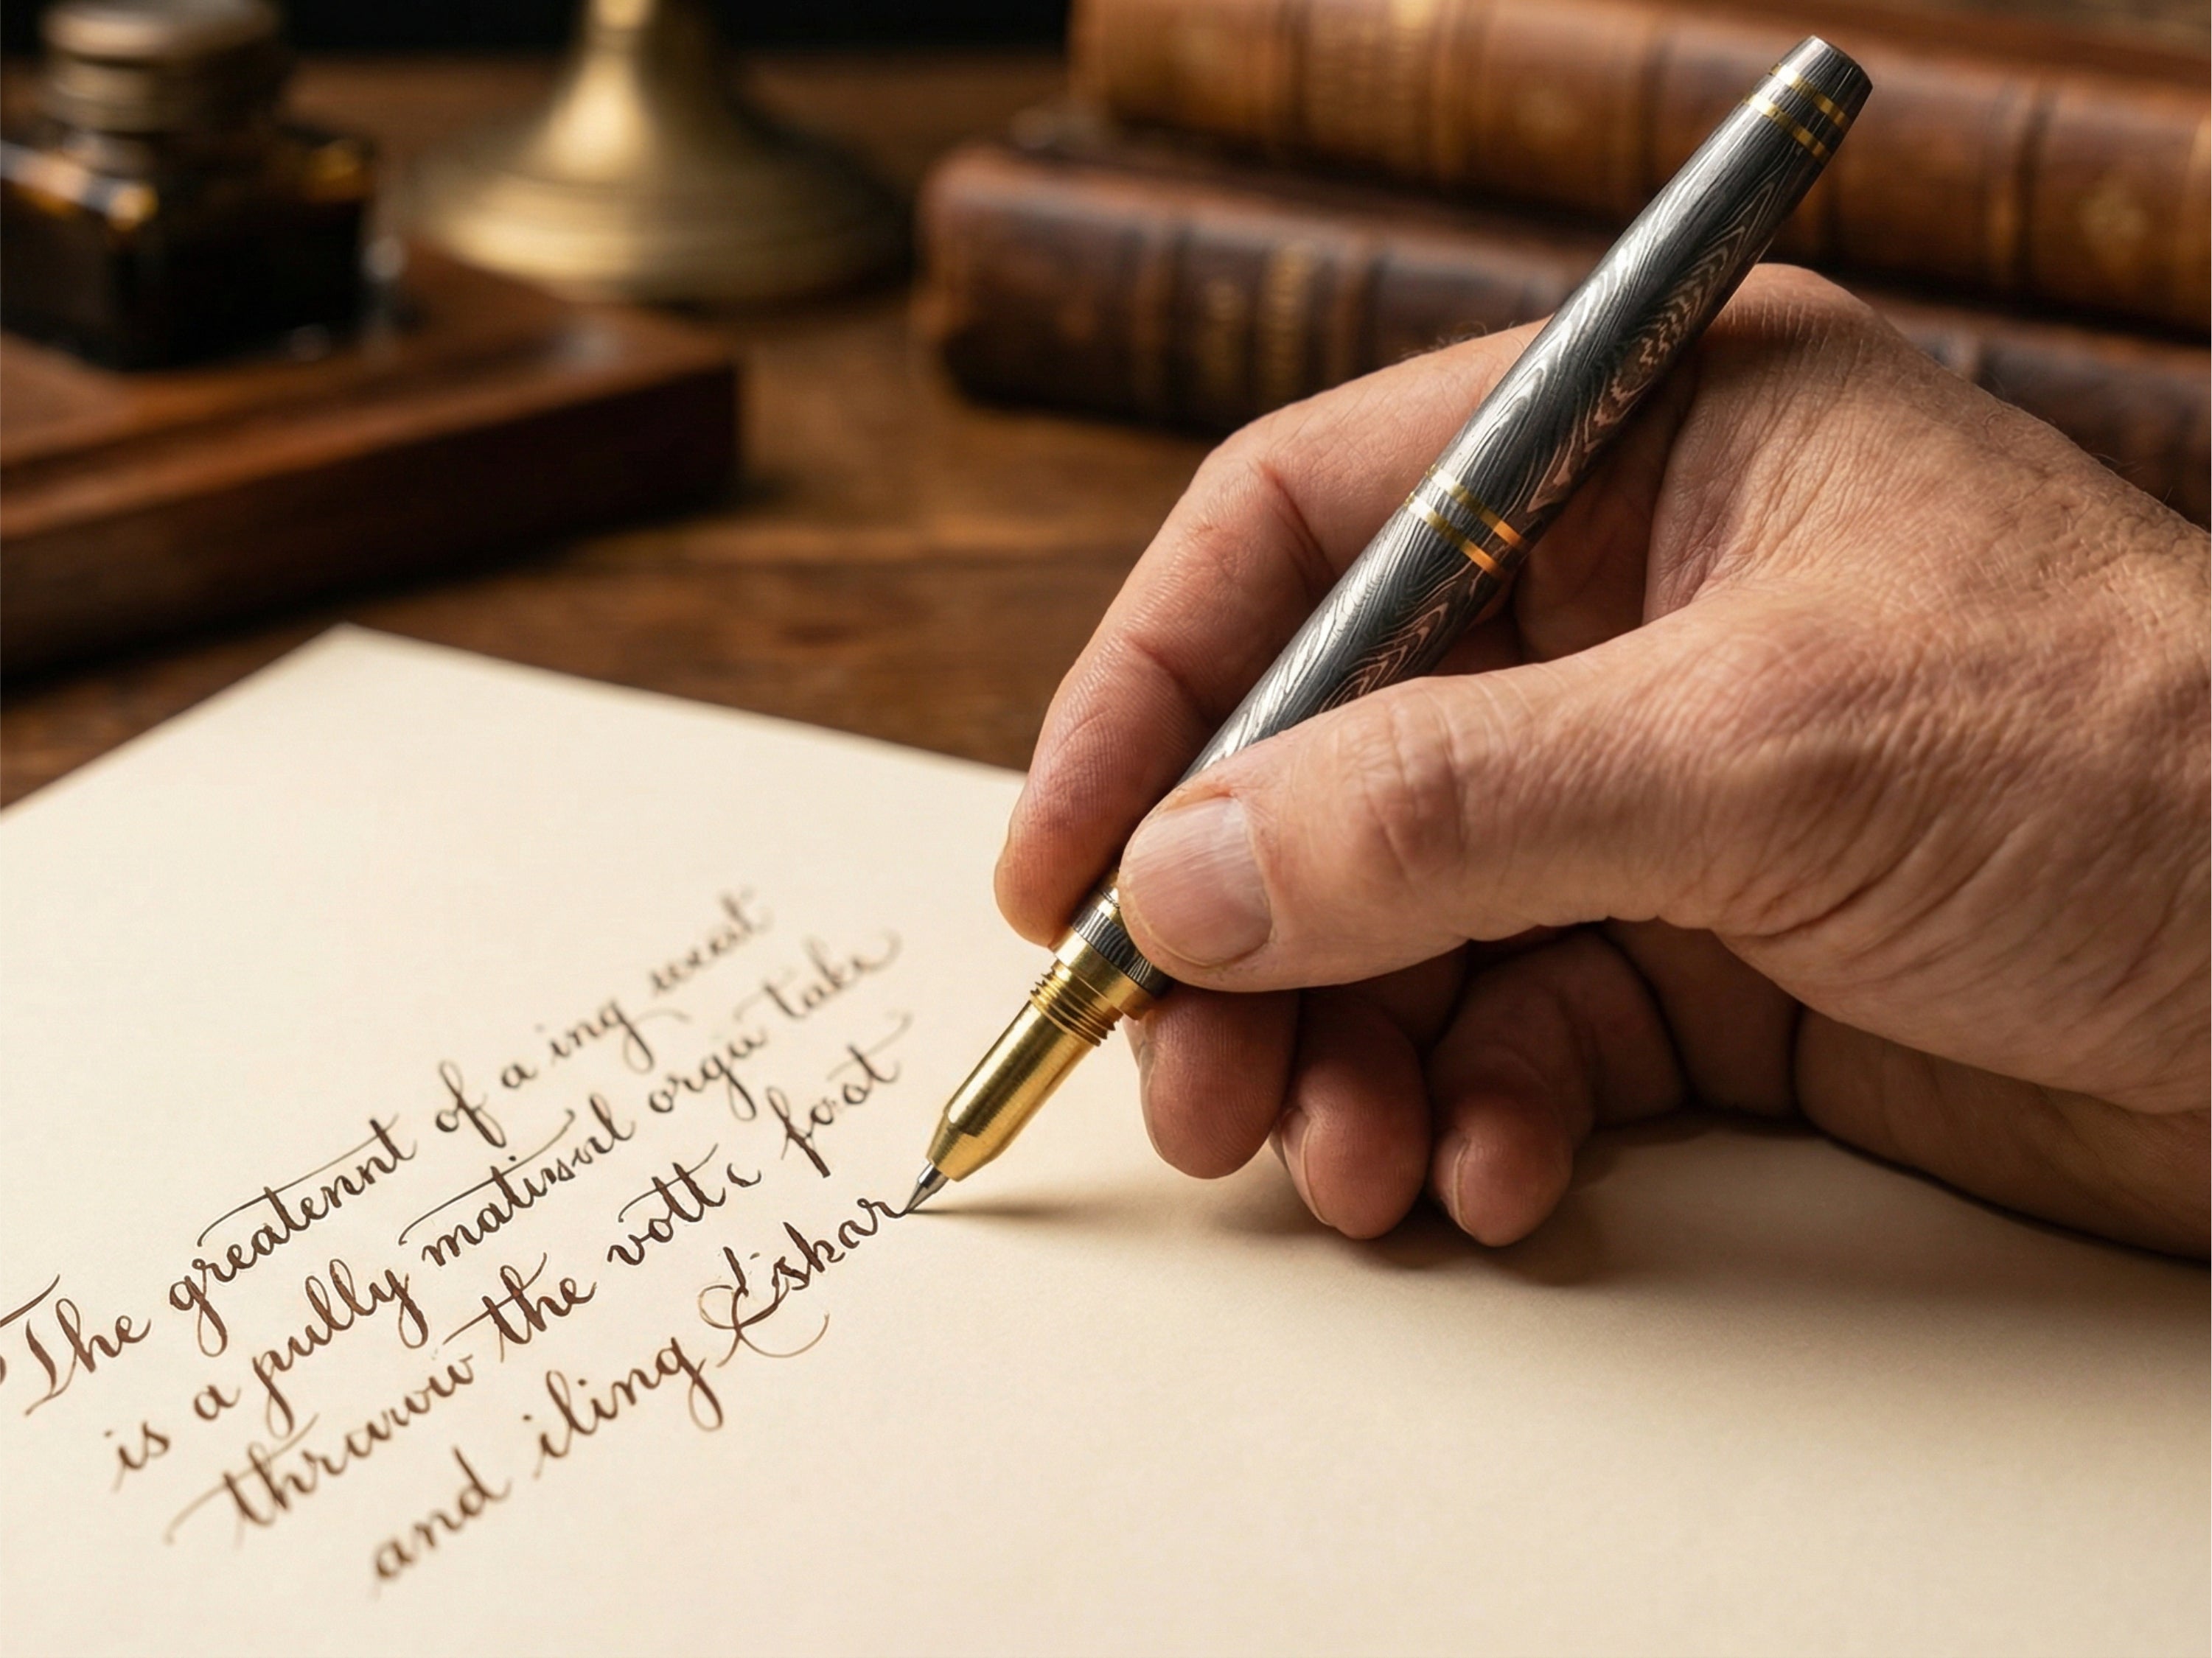 The greatennt of a ing
is a pully matisual orgu take
the votts foot
and iling Eskar